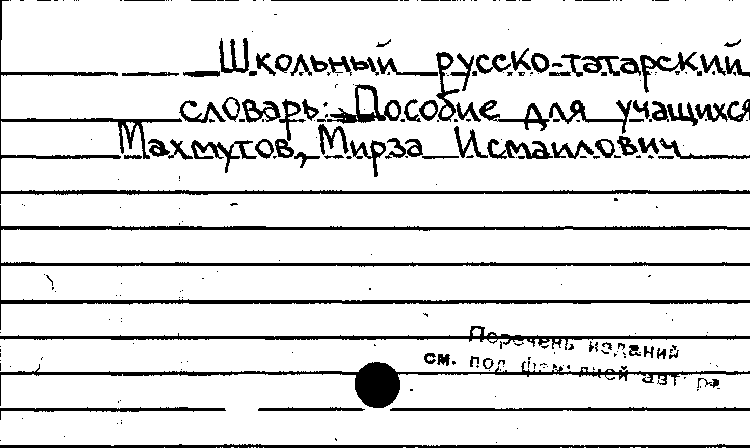 Школьный русско-татарский
словарь: Пособие для учащихся
Махмутов, Мирза Исмаилович
Перечень изданий
см. под фамилией автора